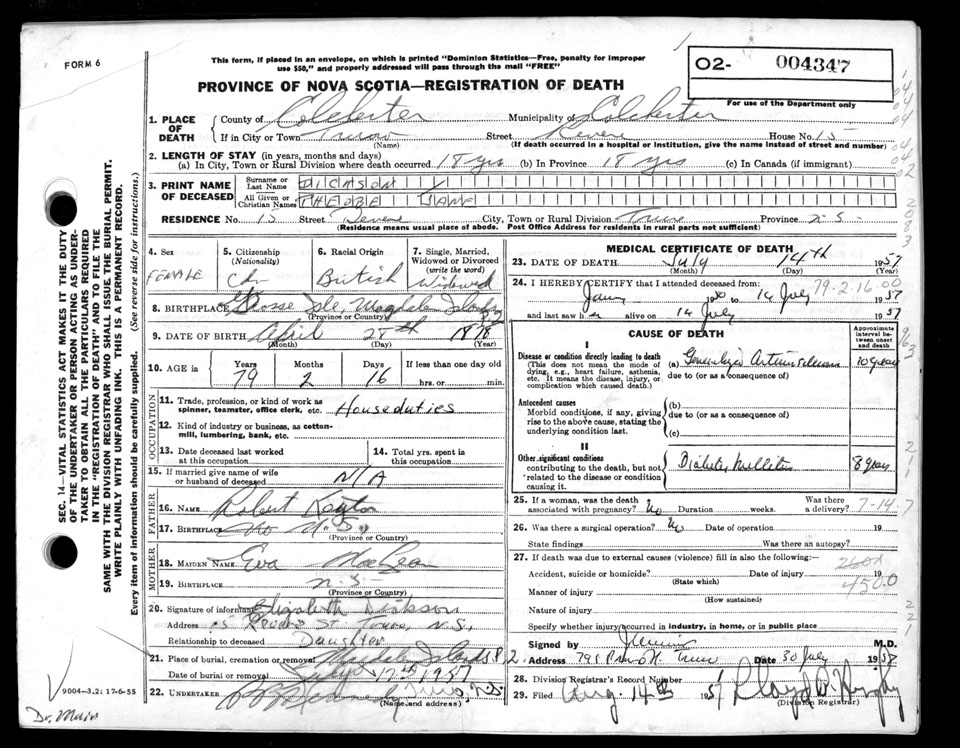 FORM 6
This form, if placed in an envelope, on which is printed "Dominion Statistics—Free, penalty for improper
use $50," and properly addressed will pass through the mail "FREE"
O2- 004347
For use of the Department only
PROVINCE OF NOVA SCOTIA—REGISTRATION OF DEATH
1. PLACE OF DEATH
County of Colchester Municipality of Colchester
If in City or Town Truro Street Revere House No. 15
(Name) (If death occurred in a hospital or institution, give the name instead of street and number)
2. LENGTH OF STAY (in years, months and days)
(a) In City, Town or Rural Division where death occurred 18 yrs (b) In Province 18 yrs (c) In Canada (if immigrant)
3. PRINT NAME OF DECEASED
Surname or Last Name DICKSON
All Given or Christian Names PHEOBE JANE
RESIDENCE No. 15 Street Revere City, Town or Rural Division Truro Province N.S.
(Residence means usual place of abode. Post Office Address for residents in rural parts not sufficient)
4. Sex
FEMALE
5. Citizenship
(Nationality)
Cdn
6. Racial Origin
British
7. Single, Married,
Widowed or Divorced
(write the word)
Widowed
8. BIRTHPLACE Grosse Isle, Magdalen Islands
(Province or Country)
9. DATE OF BIRTH April 28th 1878
(Month) (Day) (Year)
10. AGE in
Years Months Days If less than one day old
79 2 16 hrs. or min.
OCCUPATION
11. Trade, profession, or kind of work as
spinner, teamster, office clerk, etc. Houseduties
12. Kind of industry or business, as cotton-
mill, lumbering, bank, etc.
13. Date deceased last worked
at this occupation
14. Total yrs. spent in
this occupation
15. If married give name of wife
or husband of deceased N/A
FATHER
16. NAME Robert Keating
17. BIRTHPLACE N.S.
(Province or Country)
MOTHER
18. MAIDEN NAME Eva MacLean
19. BIRTHPLACE N.S.
(Province or Country)
20. Signature of informant Elizabeth Dickson
Address 15 Revere St. Truro, N.S.
Relationship to deceased Daughter
21. Place of burial, cremation or removal Magdalen Islands P.Q.
Date of burial or removal July 17th 1957
22. UNDERTAKER Truro, N.S.
(Name and address)
MEDICAL CERTIFICATE OF DEATH
23. DATE OF DEATH July 14th 1957
(Month) (Day) (Year)
24. I HEREBY CERTIFY that I attended deceased from: 79-2-16-00
to 14 July 1957
and last saw her alive on 14 July 1957
CAUSE OF DEATH
Approximate
interval be-
tween onset
and death
I
Disease or condition directly leading to death
(This does not mean the mode of
dying, e.g., heart failure, asthenia,
etc. It means the disease, injury, or
complication which caused death.)
(a) Generalized Arteriosclerosis 10 years
due to (or as a consequence of)
Antecedent causes
Morbid conditions, if any, giving
rise to the above cause, stating the
underlying condition last.
(b)
due to (or as a consequence of)
(c)
II
Other significant conditions
contributing to the death, but not
related to the disease or condition
causing it.
Diabetes Mellitus 8 years
25. If a woman, was the death
associated with pregnancy? No Duration weeks. Was there
a delivery? 7-14-7
26. Was there a surgical operation? No Date of operation 19
State findings Was there an autopsy?
27. If death was due to external causes (violence) fill in also the following:—
260X
Accident, suicide or homicide? Date of injury 19
(State which)
450.0
Manner of injury
(How sustained)
Nature of injury
Specify whether injury occurred in industry, in home, or in public place
Signed by M.D.
Address Truro Date 30 July 1957
28. Division Registrar's Record Number
29. Filed Aug. 14th 1957 Lloyd
(Division Registrar)
SEC. 14—VITAL STATISTICS ACT MAKES IT THE DUTY
OF THE UNDERTAKER OR PERSON ACTING AS UNDER-
TAKER TO OBTAIN ALL THE PARTICULARS REQUIRED
IN THE "REGISTRATION OF DEATH" AND TO FILE THE
SAME WITH THE DIVISION REGISTRAR WHO SHALL ISSUE THE BURIAL PERMIT.
WRITE PLAINLY WITH UNFADING INK. THIS IS A PERMANENT RECORD.
Every item of information should be carefully supplied. (See reverse side for instructions.)
9004-3,2: 17-6-55
Dr. Muir